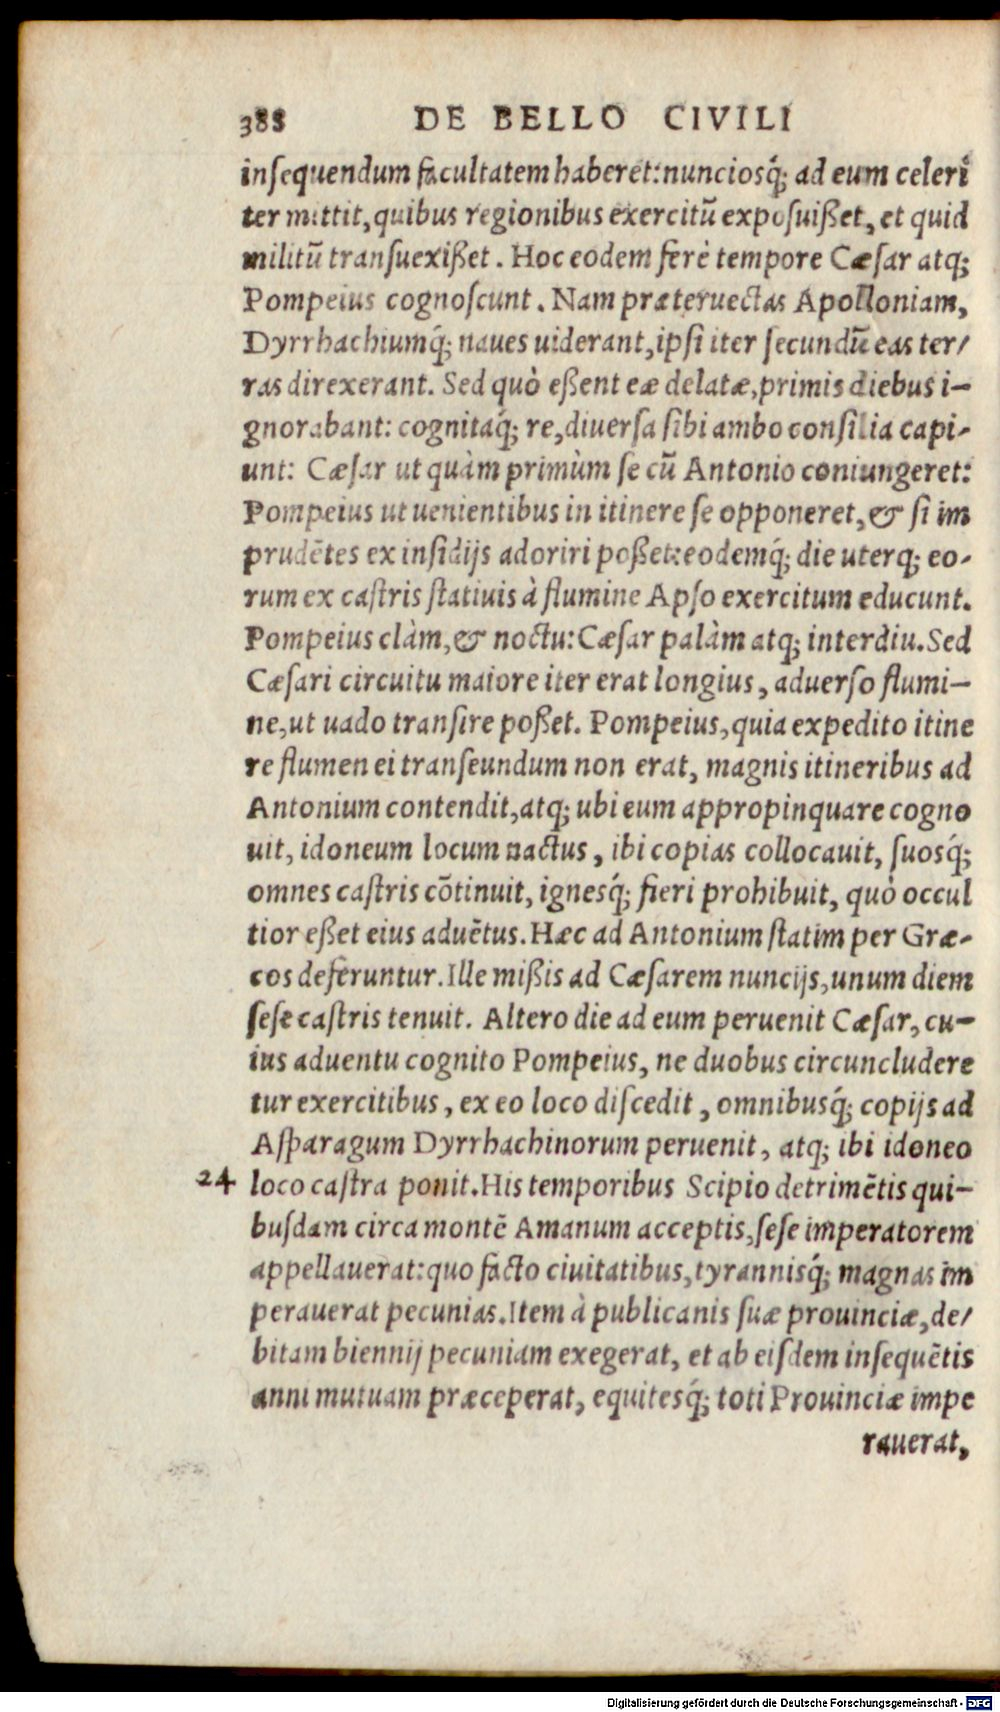 388 DE BELLO CIVILI
inſequendum facultatem haberet: nuncioſq́; ad eum celeri
ter mittit, quibus regionibus exercitū expoſuiſſet, et quid
militū tranſuexiſſet. Hoc eodem ferè tempore Cæſar atq;
Pompeius cognoſcunt. Nam præteruectas Apolloniam,
Dyrrhachiumq́; naues uiderant, ipſi iter ſecundū eas ter/
ras direxerant. Sed quò eſſent eæ delatæ, primis diebus i-
gnorabant: cognitaq́; re, diuerſa ſibi ambo conſilia capi-
unt: Cæſar ut quàm primùm ſe cū Antonio coniungeret:
Pompeius ut uenientibus in itinere ſe opponeret, & ſi im
prudētes ex inſidijs adoriri poſſet: eodemq́; die uterq; eo-
rum ex caſtris ſtatiuis à flumine Apſo exercitum educunt.
Pompeius clàm, & noctu: Cæſar palàm atq; interdiu. Sed
Cæſari circuitu maiore iter erat longius, aduerſo flumi-
ne, ut uado tranſire poſſet. Pompeius, quia expedito itine
re flumen ei tranſeundum non erat, magnis itineribus ad
Antonium contendit, atq; ubi eum appropinquare cogno
uit, idoneum locum nactus, ibi copias collocauit, ſuoſq́;
omnes caſtris cōtinuit, igneſq́; fieri prohibuit, quò occul
tior eſſet eius aduētus. Hæc ad Antonium ſtatim per Græ-
cos deferuntur. Ille miſſis ad Cæſarem nuncijs, unum diem
ſeſe caſtris tenuit. Altero die ad eum peruenit Cæſar, cu-
ius aduentu cognito Pompeius, ne duobus circuncludere
tur exercitibus, ex eo loco diſcedit, omnibuſq́; copijs ad
Aſparagum Dyrrhachinorum peruenit, atq; ibi idoneo
24 loco caſtra ponit. His temporibus Scipio detrimētis qui-
buſdam circa montē Amanum acceptis, ſeſe imperatorem
appellauerat: quo facto ciuitatibus, tyranniſq́; magnas im
perauerat pecunias. Item à publicanis ſuæ prouinciæ, de/
bitam biennij pecuniam exegerat, et ab eiſdem inſequētis
anni mutuam præceperat, equiteſq́; toti Prouinciæ impe
rauerat,
Digitalisierung gefördert durch die Deutsche Forschungsgemeinschaft - DFG